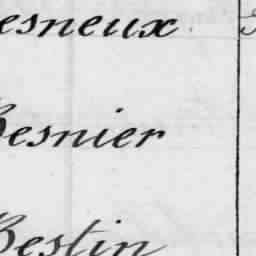 esneux
Besnier
Bestin